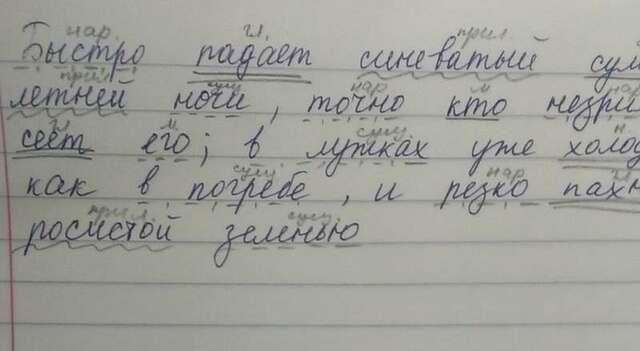 нар. гл. прил.
Быстро падает синеватый сум
прил. сущ. нар. м. нар
летней ночи, точно кто незри
гл. м. сущ. н.
сеет его; в лужках уже холод
сущ. нар. гл
как в погребе, и резко пахн
прил. сущ.
росистой зеленью